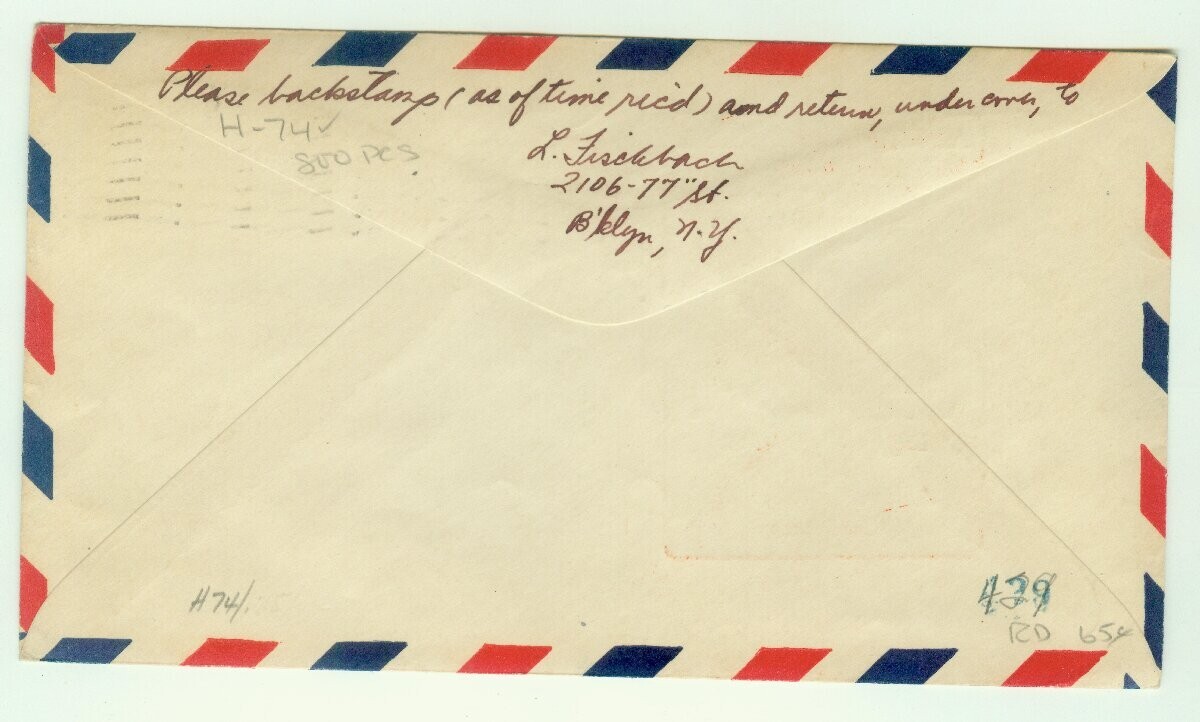 Please backstamp (as of time rec'd) and return, under cover, to
H-74✓
800 PCS
L. Fischbach
2106-77" St.
B'klyn, N.Y.
H74/
RD 65¢